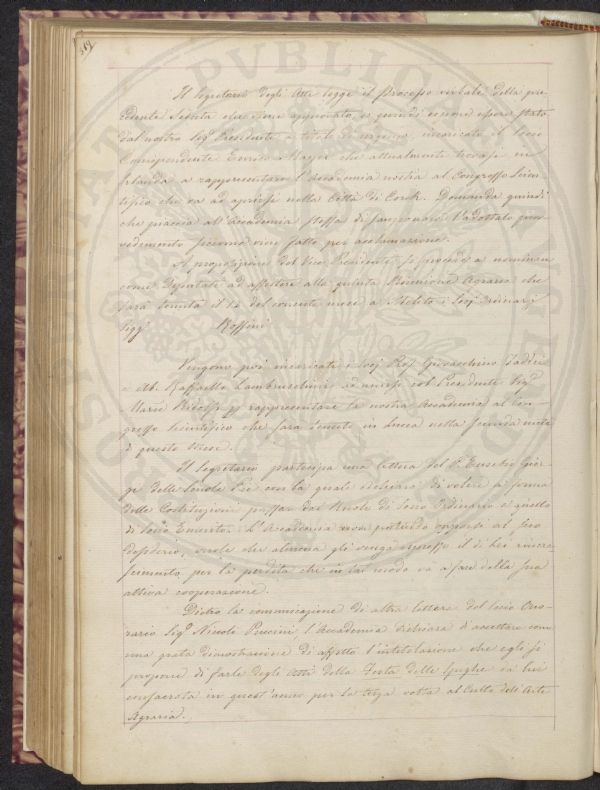 319
Il Segretario degli Atti legge il Processo verbale della pre-
cedente Seduta che viene approvato, e quindi essere stato
dal nostro Sigr Presidente a titolo di urgenza, incaricato il Socio
Corrispondente Enrico Mayer che attualmente trovasi in
Irlanda a rappresentare l'Accademia nostra al Congresso Scien-
tifico che va ad aprirsi nella Città di Cork. Domanda quindi
che piaccia all'Accademia stessa di sanzionare l'adottato prov-
vedimento siccome vien fatto per acclamazione.
A proposizione del Vice Presidente si procede a nominare
come Deputati ad assistere alla quinta Riunione Agraria che
sarà tenuta il 12 del corrente mese a Meleto i Socj Ordinarj
Sigg Rossini
Vengono poi incaricati i Socj Prof Giovacchino Taddei
e Ab. Raffaello Lambruschini ad unirsi col Presidente Sigr
March Ridolfi p rappresentare la nostra Accademia al Con-
gresso Scientifico che sarà tenuto in Lucca nella seconda metà
di questo Mese.
Il Segretario partecipa una lettera del P. Eusebio Gior-
gi delle Scuole Pie con la quale dichiara di volere a forma
delle Costituzioni passar dal Ruolo di Socio Ordinario a quello
di Socio Emerito. L'Accademia non potendo opporsi al suo
desiderio, vuole che almeno gli venga espresso il di lei rincre-
scimento per la perdita che in tal modo va a fare della sua
attiva cooperazione.
Dietro la comunicazione di altra lettera del Socio Ono-
rario Sigr Niccolò Puccini, l'Accademia dichiara d'accettare come
una grata dimostrazione di affetto l'intitolazione che egli si
propone di farle degli Atti della Festa delle Spighe da lui
consacrata in quest'anno per la terza volta al Culto dell'Arte
Agraria.